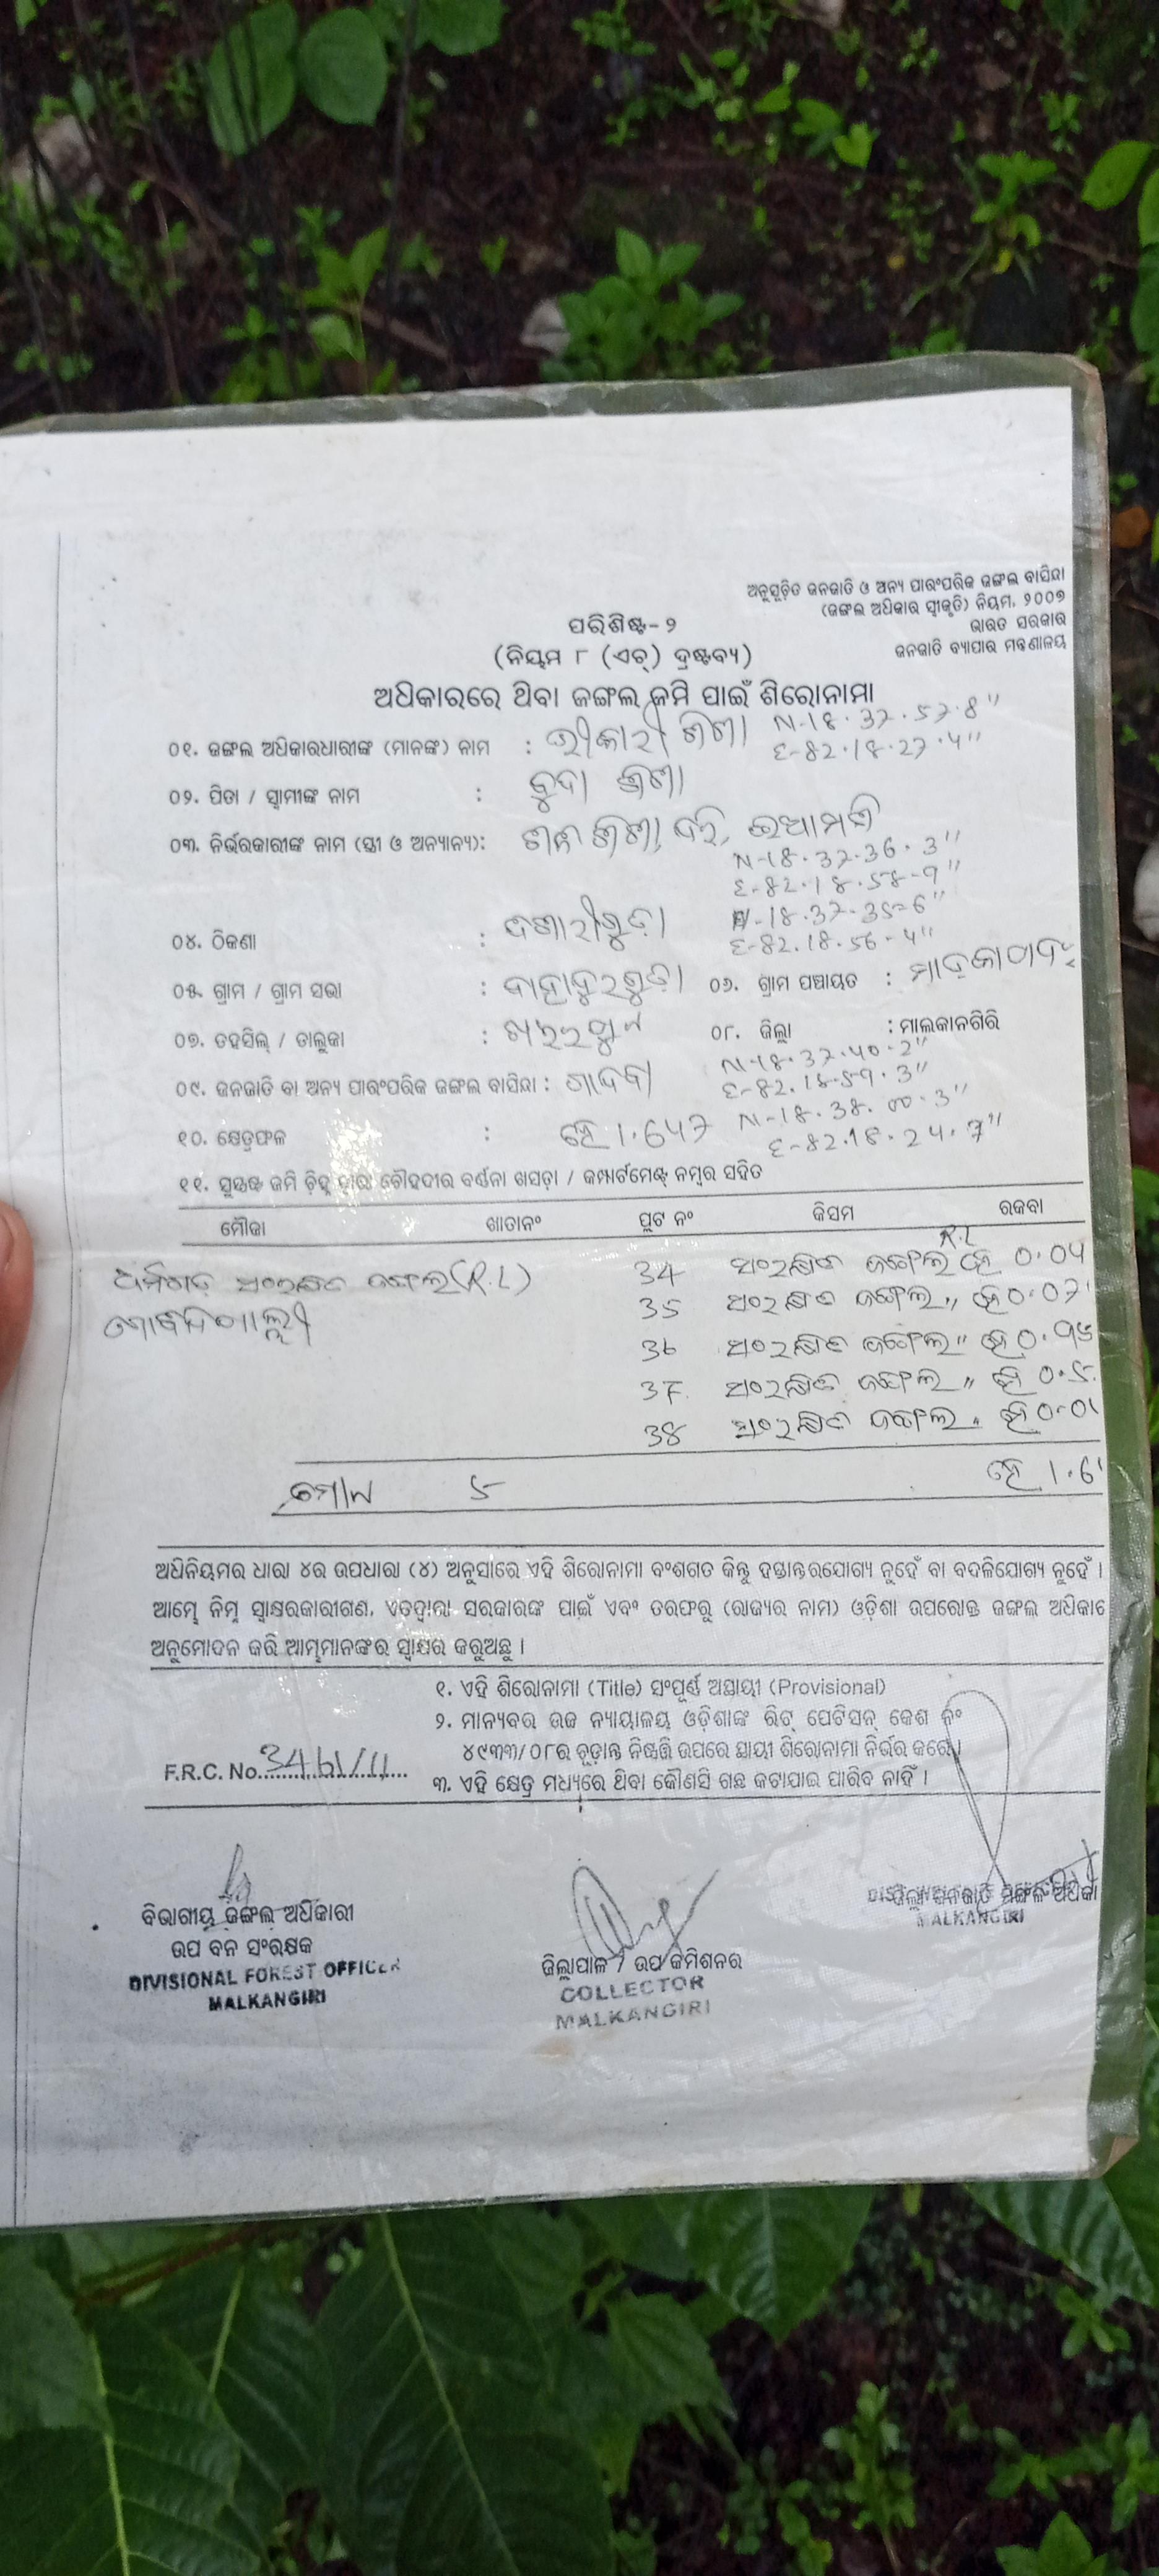 ଅନୁସୂଚିତ ଜନଜାତି ଓ ଅନ୍ୟ ପାରଂପରିକ ଜଙ୍ଗଲ ବାସିନ୍ଦା
(ଜଙ୍ଗଲ ଅଧିକାର ସ୍ୱୀକୃତି) ନିୟମ, ୨୦୦୭
ଭାରତ ସରକାର
ଜନଜାତି ବ୍ୟାପାର ମନ୍ତ୍ରଣାଳୟ
ପରିଶିଷ୍ଟ-୨
(ନିୟମ ୮ (ଏଚ୍) ଦ୍ରଷ୍ଟବ୍ୟ)
ଅଧିକାରରେ ଥିବା ଜଙ୍ଗଲ ଜମି ପାଇଁ ଶିରୋନାମା
N-18.37.57.8"
୦୧. ଜଙ୍ଗଲ ଅଧିକାରଧାରୀଙ୍କ (ମାନଙ୍କ) ନାମ :
E-82.18.27.4"
୦୨. ପିତା / ସ୍ୱାମୀଙ୍କ ନାମ :
୦୩. ନିର୍ଭରକାରୀଙ୍କ ନାମ (ସ୍ତ୍ରୀ ଓ ଅନ୍ୟାନ୍ୟ):
N-18.37.36.3"
E-82.18.58-9"
N-18.37.35-6"
୦୪. ଠିକଣା : E-82.18.56-4"
୦୫. ଗ୍ରାମ / ଗ୍ରାମ ସଭା : ୦୬. ଗ୍ରାମ ପଞ୍ଚାୟତ :
୦୭. ତହସିଲ୍ / ତାଲୁକା : ୦୮. ଜିଲ୍ଲା : ମାଲକାନଗିରି
N-18.37.40.2"
୦୯. ଜନଜାତି ବା ଅନ୍ୟ ପାରଂପରିକ ଜଙ୍ଗଲ ବାସିନ୍ଦା : ଗାଦବା E-82.18.59.3"
୧୦. କ୍ଷେତ୍ରଫଳ : ହେ 1.647 N-18.38.00.3"
E-82.18.24.7"
୧୧. ସୁସ୍ପଷ୍ଟ ଜମି ଚିହ୍ନ ଦ୍ୱାରା ଚୌହଦୀର ବର୍ଣ୍ଣନା ଖସଡ଼ା / କମ୍ପାର୍ଟମେଣ୍ଟ ନମ୍ବର ସହିତ
ମୌଜା ଖାତାନଂ ପ୍ଲଟ ନଂ କିସମ ରକବା
ସଂରକ୍ଷିତ ଜଙ୍ଗଲ (R.L) 34 ସଂରକ୍ଷିତ ଜଙ୍ଗଲ R.L ହେ 0.04
35 ସଂରକ୍ଷିତ ଜଙ୍ଗଲ " ହେ 0.07
36 ସଂରକ୍ଷିତ ଜଙ୍ଗଲ " ହେ
37 ସଂରକ୍ଷିତ ଜଙ୍ଗଲ " ହେ 0.5
38 ସଂରକ୍ଷିତ ଜଙ୍ଗଲ " ହେ 0-01
ମୋଟ ୫ ହେ 1.6
ଅଧିନିୟମର ଧାରା ୪ର ଉପଧାରା (୪) ଅନୁସାରେ ଏହି ଶିରୋନାମା ବଂଶଗତ କିନ୍ତୁ ହସ୍ତାନ୍ତରଯୋଗ୍ୟ ନୁହେଁ ବା ବଦଳିଯୋଗ୍ୟ ନୁହେଁ ।
ଆମ୍ଭେ ନିମ୍ନ ସ୍ୱାକ୍ଷରକାରୀଗଣ, ଏତଦ୍ୱାରା ସରକାରଙ୍କ ପାଇଁ ଏବଂ ତରଫରୁ (ରାଜ୍ୟର ନାମ) ଓଡ଼ିଶା ଉପରୋକ୍ତ ଜଙ୍ଗଲ
ଅନୁମୋଦନ କରି ଆମ୍ଭମାନଙ୍କର ସ୍ୱାକ୍ଷର କରୁଅଛୁ ।
୧. ଏହି ଶିରୋନାମା (Title) ସଂପୂର୍ଣ୍ଣ ଅସ୍ଥାୟୀ (Provisional)
୨. ମାନ୍ୟବର ଉଚ୍ଚ ନ୍ୟାୟାଳୟ ଓଡ଼ିଶାଙ୍କ ରିଟ୍ ପେଟିସନ୍ କେଶ ନଂ
୪୯୩୩/୦୮ର ଚୂଡ଼ାନ୍ତ ନିଷ୍ପତ୍ତି ଉପରେ ସ୍ଥାୟୀ ଶିରୋନାମା ନିର୍ଭର କରେ ।
F.R.C. No.
୩. ଏହି କ୍ଷେତ୍ର ମଧ୍ୟରେ ଥିବା କୌଣସି ଗଛ କଟାଯାଇ ପାରିବ ନାହିଁ ।
ବିଭାଗୀୟ ଜଙ୍ଗଲ ଅଧିକାରୀ
ଉପ ବନ ସଂରକ୍ଷକ
DIVISIONAL FOREST OFFICER
MALKANGIRI
ଜିଲ୍ଲାପାଳ / ଉପ କମିଶନର
COLLECTOR
MALKANGIRI
ଜିଲ୍ଲା ଜନଜାତି ମଙ୍ଗଳ
MALKANGIRI